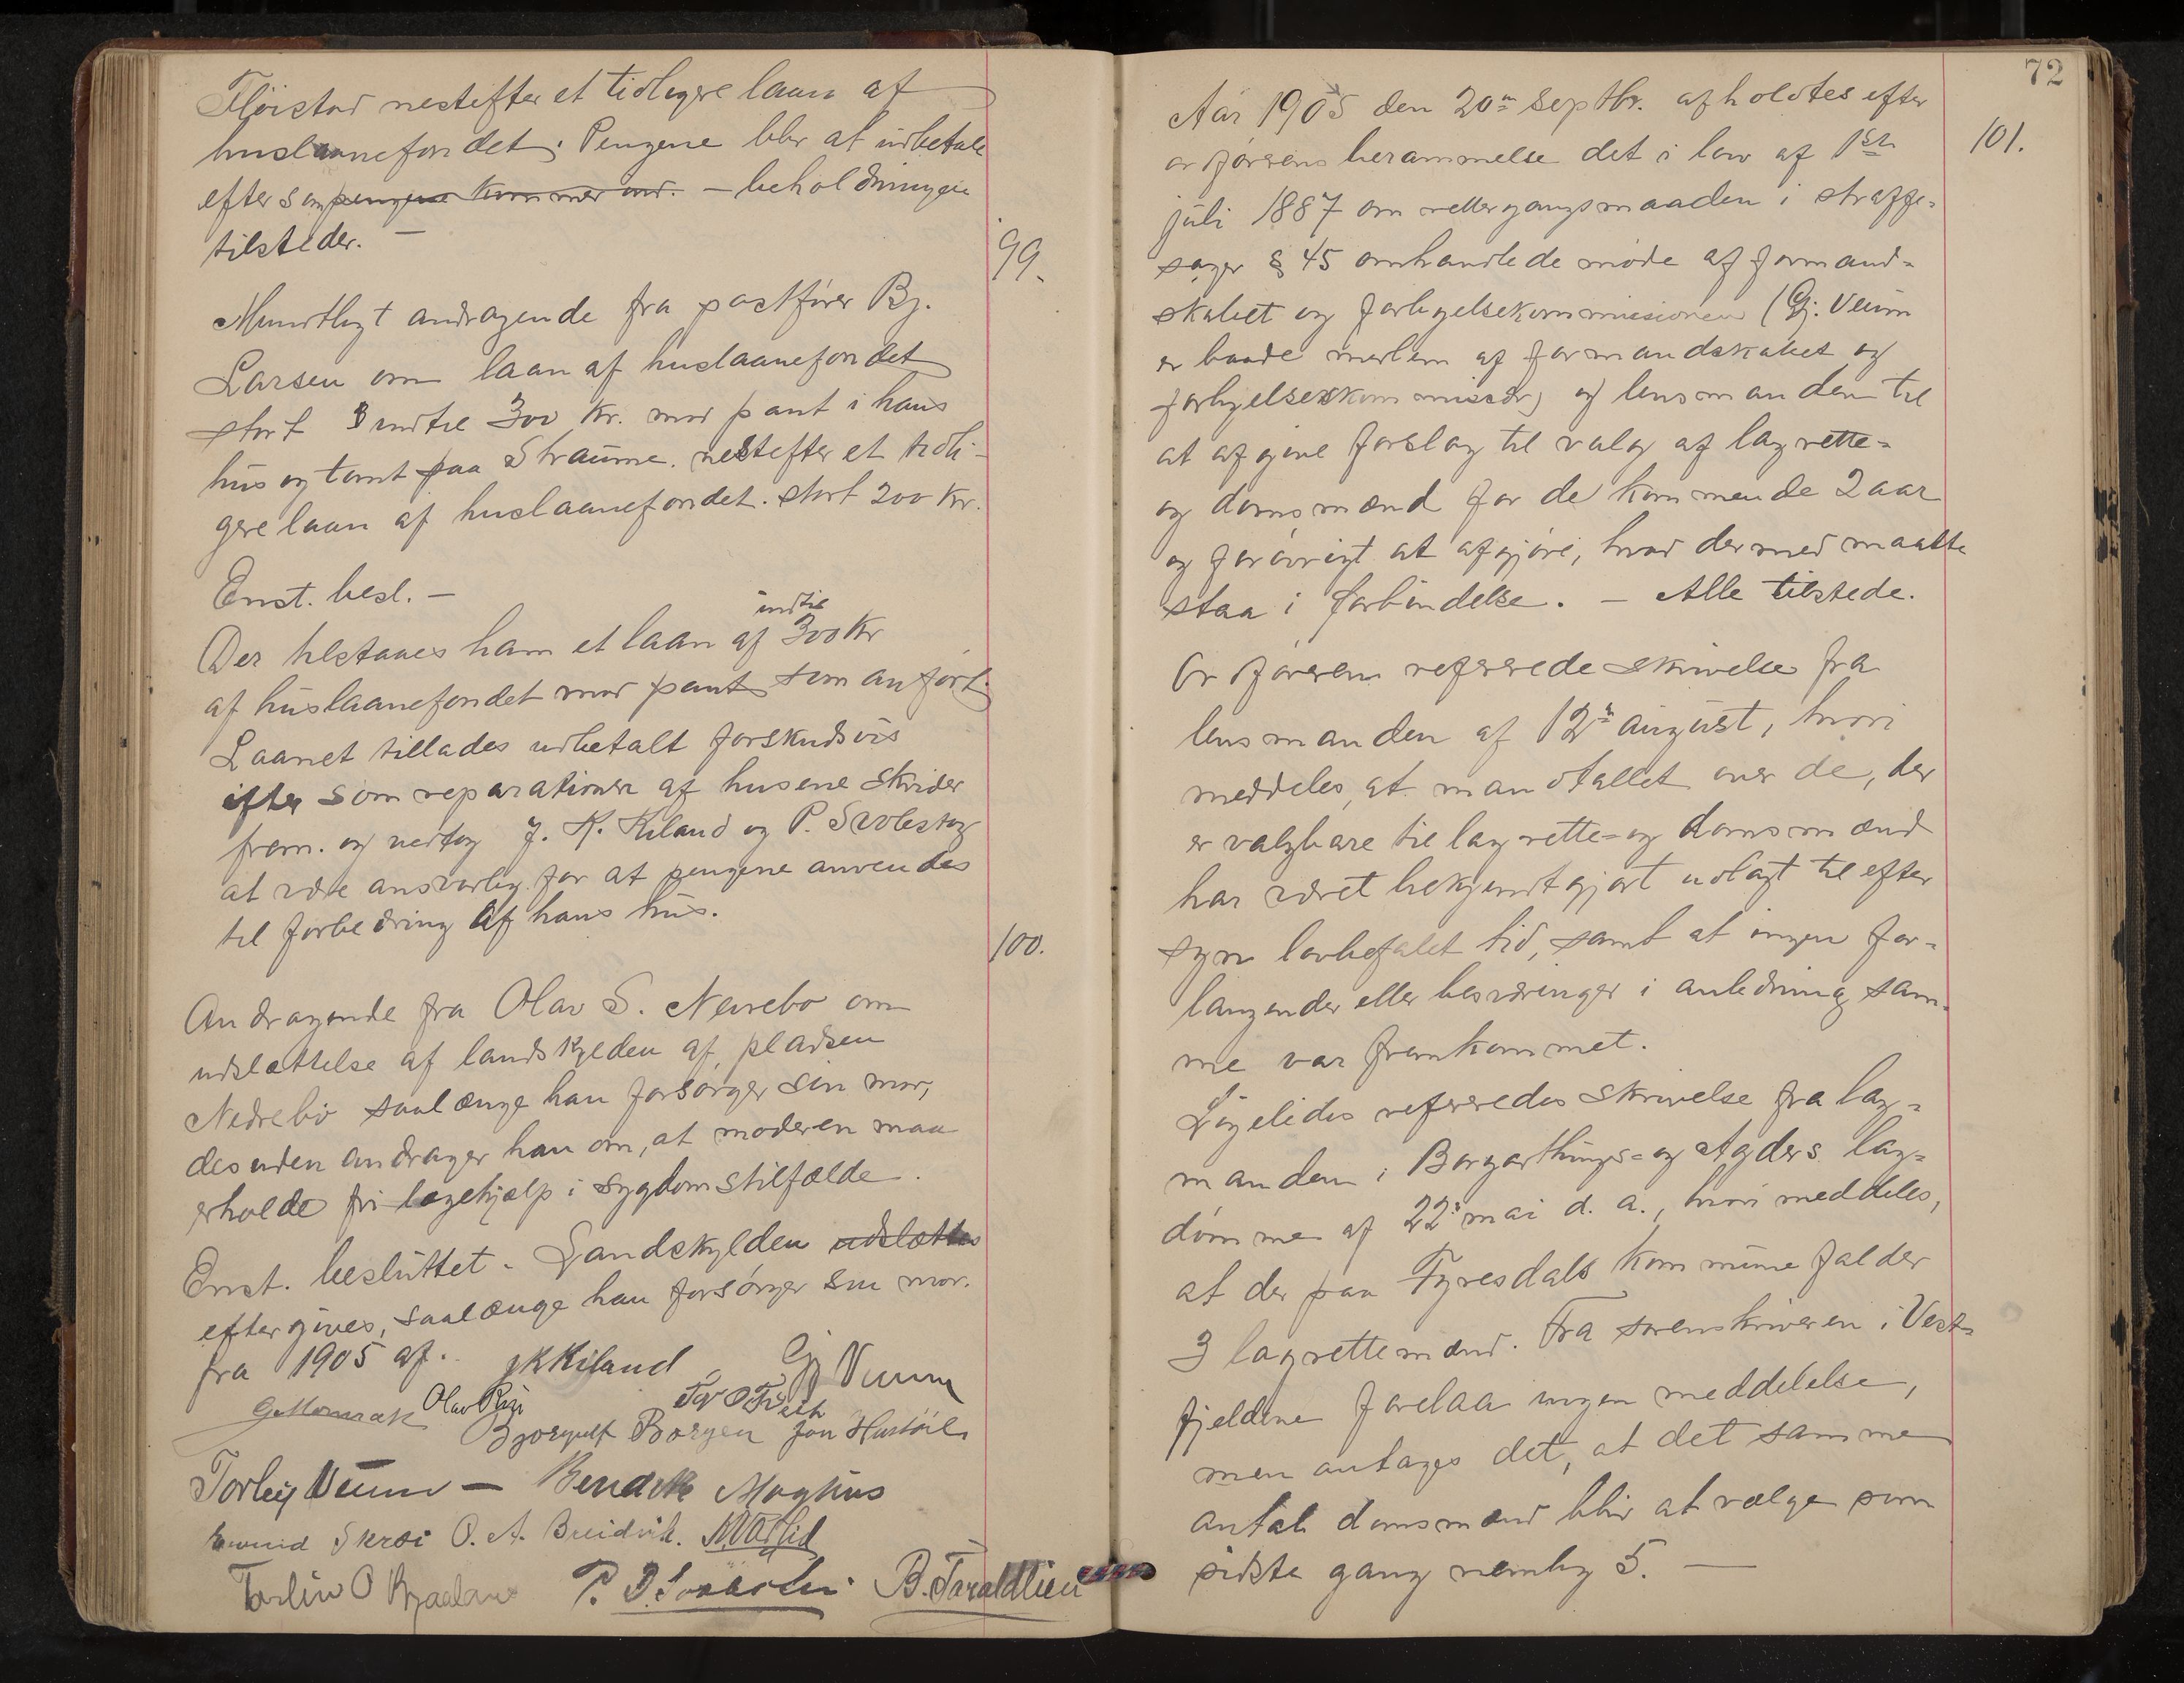 Fløistad nestefter et tidligere laan af
huslaanefondet. Pengene blir at udbetale
eftersom pengene kommer ind. – beholdningen
tilsteder. –
99.
Mundtligt andragende fra postfører Bj.
Larsen om laan af huslaanefondet
stort indtil 300 kr. mod pant i hans
hus og tomt paa Straume. nestefter et tidli-
gere laan af huslaanefondet. stort 200 kr.
Enst. besl. –
indtil
Der tilstaaes ham et laan af 300 kr
af huslaanefondet mod pant som anført
Laanet tillades udbetalt forskudsvis
efter som reparationen af husene skrider
frem. og vedtog J. K. Kiland og P.
at være ansvarlig for at pengene anvendes
til forbedring af hans hus.
100.
Andragende fra Olav S. Nedrebø om
udslettelse af landskylden af pladsen
Nedrebø saalænge han forsørger sin mor,
desuden andrager han om, at moderen maa
erholde fri lægehjælp i sygdomstilfælde.
Enst. besluttet. Landskylden udslættes
eftergives, saalænge han forsørger sin mor.
fra 1905 af. JKKiland Gj Veum
Olav
Bjørgulf Borgen Jon
Torleif Veum – Bendik Moghus
Skræi O. A. Breidvik.
O P. B. Taraldlien
72
Aar 1905 den 20de septbr. afholdtes efter
101.
ordførerens berammelse det i lov af 1ste
juli 1887 om rettergangsmaaden i straffe-
sager § 45 omhandlede møde af formand-
skabet og forligelseskommissionen (Gj. Veum
er baade medlem af formandskabet og
forligelseskommissær) og lensmanden til
at afgive forslag til valg af lagrette-
og domsmænd for de kommende 2 aar
og forøvrigt at afgjøre, hvad dermed maatte
staa i forbindelse. – Alle tilstede.
Ordføreren refererede skrivelse fra
lensmanden af 12te august, hvori
meddeles, at mandtallet over de, der
er valgbare til lagrette- og domsmænd
har været bekjendtgjort udlagt til efter
syn lovbefalet tid, samt at ingen for-
langender eller besværinger i anledning sam-
me var fremkommet.
Ligeledes refereredes skrivelse fra lag-
manden i Borgarthings- og Agders lag-
dømme af 22de mai d. a., hvori meddeles,
at der paa Fyresdals kommune falder
3 lagrettemænd. Fra sorenskriveren i Vest-
fjeldene forelaa ingen meddelelse,
men antages det, at det samme
antal domsmænd blir at vælge som
sidste gang nemlig 5. —